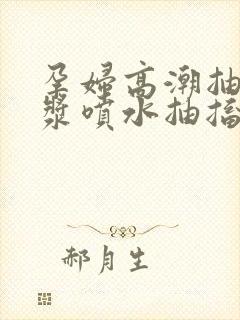 孕婦高潮抽
漿噴水抽搐
郝月生